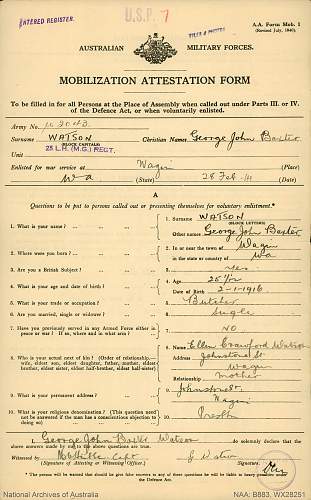 ENTERED REGISTER.
U.S.P. 7
A.A. Form Mob. 1
(Revised July, 1940).
AUSTRALIAN MILITARY FORCES.
MOBILIZATION ATTESTATION FORM
To be filled in for all Persons at the Place of Assembly when called out under Parts III. or IV.
of the Defence Act, or when voluntarily enlisted.
Army No.
Surname WATSON Christian Names George John Baxter
(BLOCK CAPITALS)
Unit 25 L.H. (M.G.) REGT.
Enlisted for war service at Wagin (Place)
WA (State) 28 Feb 41 (Date)
A
Questions to be put to persons called out or presenting themselves for voluntary enlistment.
1. What is your name? 1. Surname WATSON
(BLOCK LETTERS)
Other names George John Baxter
2. Where were you born? 2. In or near the town of Wagin
in the state or country of WA
3. Are you a British Subject? 3. yes
4. What is your age and date of birth? 4. Age 25 yrs
Date of Birth 2-1-1916
5. What is your trade or occupation? 5. Butcher
6. Are you married, single or widower? 6. Single
7. Have you previously served in any Armed Force either in
peace or war? If so, where and in what arm? 7. NO
8. Who is your actual next of kin? (Order of relationship,—
wife, eldest son, eldest daughter, father, mother, eldest
brother, eldest sister, eldest half-brother, eldest half-sister)
8. Name Ellen Crawford Watson
Address Johnston St
Wagin
Relationship mother
9. What is your permanent address? 9. Johnston St
Wagin
10. What is your religious denomination? (This question need
not be answered if the man has a conscientious objection to
doing so) 10. Presbn
I, George John Baxter Watson do solemnly declare that the
above answers made by me to the above questions are true.
Witnessed by Capt G Watson
(Signature of Attesting or Witnessing Officer.) (Signature.)
N.B.—The person will be warned that should he give false answers to any of these questions he will be liable to heavy penalties
under the Defence Act.
National Archives of Australia NAA: B883, WX28251